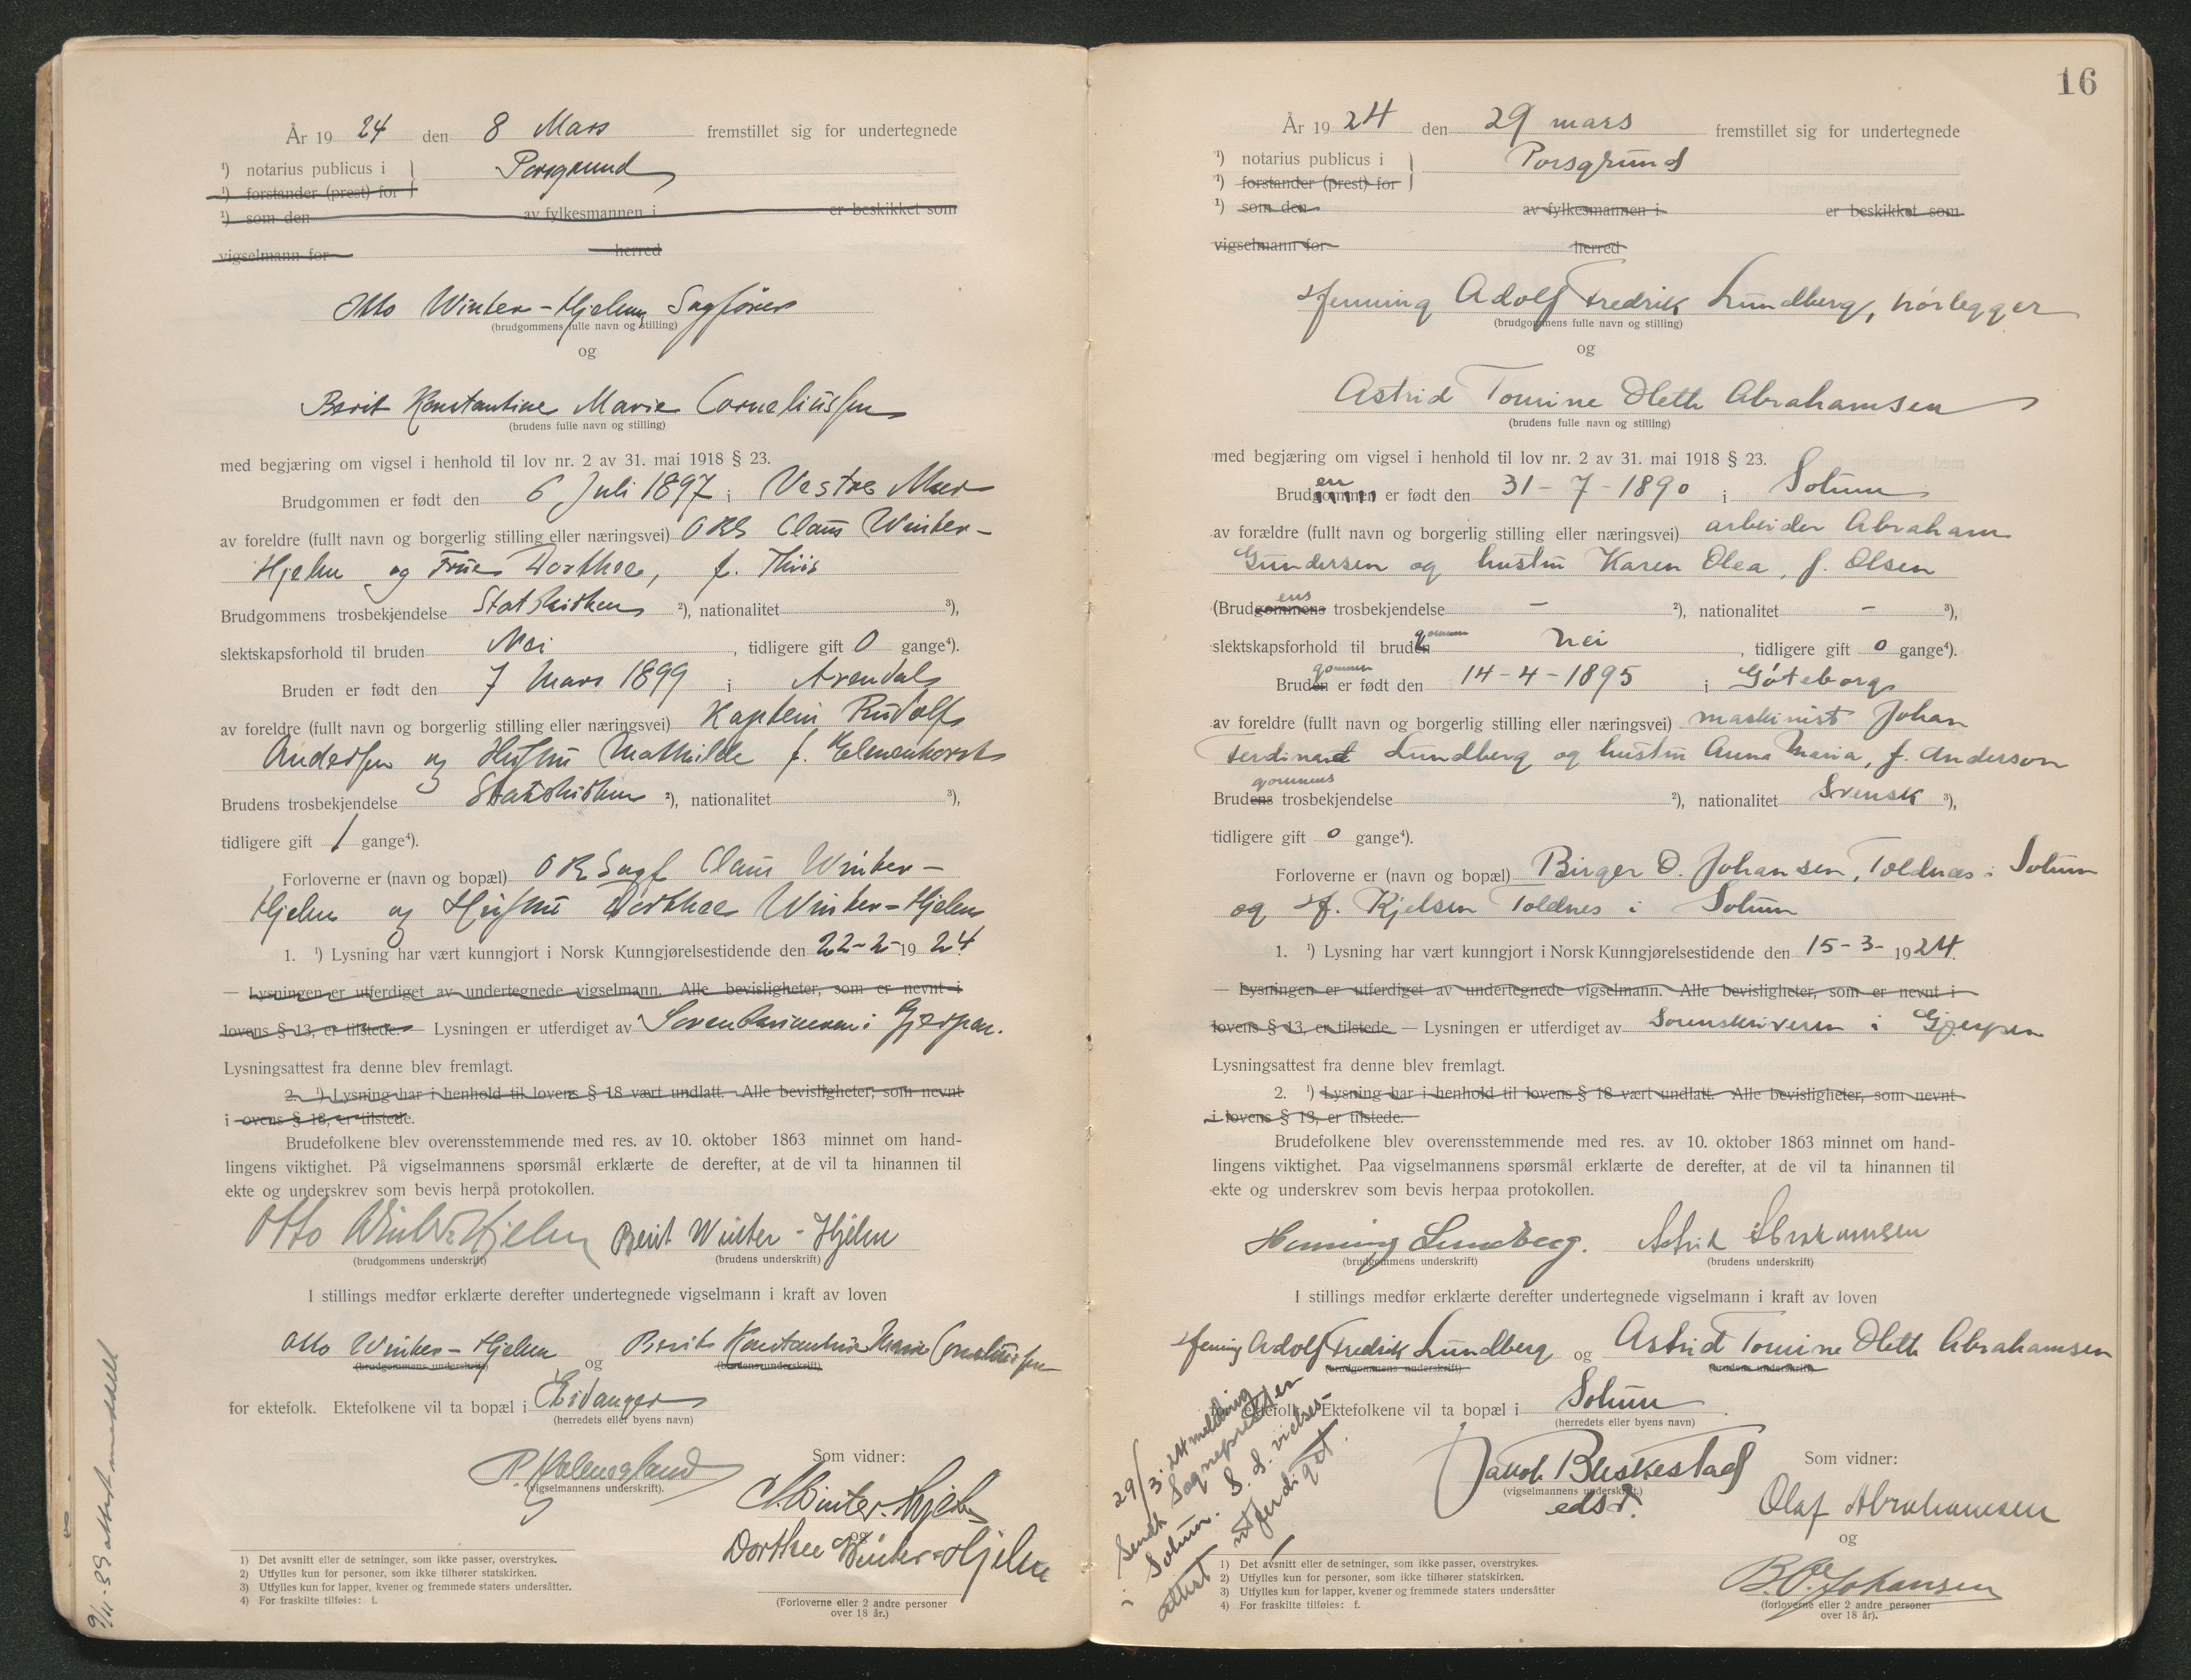 År 19 24 den 8 Mars fremstillet sig for undertegnede
¹) notarius publicus i } Porsgrund
¹) forstander (prest) for
¹) som den av fylkesmannen i er beskikket som
vigselmann for herred
Otto Winter-Hjelm, Sagfører
(brudgommens fulle navn og stilling)
og
Berit Konstantine Marie Corneliussen
(brudens fulle navn og stilling)
med begjæring om vigsel i henhold til lov nr. 2 av 31. mai 1918 § 23.
Brudgommen er født den 6 Juli 1897 i Vestre Aker
av foreldre (fullt navn og borgerlig stilling eller næringsvei) ORS Claus Winter-
Hjelm og Frue Dorthee, f. Thiis
Brudgommens trosbekjendelse Statskirken ²), nationalitet ³),
slektskapsforhold til bruden Nei, tidligere gift 0 gange⁴).
Bruden er født den 7 Mars 1899 i Arendal
av foreldre (fullt navn og borgerlig stilling eller næringsvei) Kaptein Rudolf
Andersen og Hustru Mathilde f. Elmenhorst
Brudens trosbekjendelse Statskirken ²), nationalitet ³),
tidligere gift 1 gange⁴).
Forloverne er (navn og bopæl) ORSagf Claus Winter-
Hjelm og Hustru Dorthee Winter-Hjelm
1. ¹) Lysning har vært kunngjort i Norsk Kunngjørelsestidende den 22-2-19 24
— Lysningen er utferdiget av undertegnede vigselmann. Alle bevisligheter, som er nevnt i
lovens § 13, er tilstede. — Lysningen er utferdiget av Sorenskriveren i Gjerpen.
Lysningsattest fra denne blev fremlagt.
2. ¹) Lysning har i henhold til lovens § 18 vært undlatt. Alle bevisligheter, som nevnt
i ovens § 13, er tilstede.
Brudefolkene blev overensstemmende med res. av 10. oktober 1863 minnet om hand-
lingens viktighet. På vigselmannens spørsmål erklærte de derefter, at de vil ta hinannen til
ekte og underskrev som bevis herpå protokollen.
Otto Winter Hjelm Berit Winter-Hjelm
(brudgommens underskrift) (brudens underskrift)
I stillings medfør erklærte derefter undertegnede vigselmann i kraft av loven
Otto Winter-Hjelm og Berit Konstantine Marie Corneliussen
(brudgommens underskrift) (brudens underskrift)
for ektefolk. Ektefolkene vil ta bopæl i Eidanger
(herredets eller byens navn)
Som vidner:
(vigselmannens underskrift).
C. Winter-Hjelm
og
Dorthee Winter-Hjelm
(Forloverne eller 2 andre personer
over 18 år.)
1) Det avsnitt eller de setninger, som ikke passer, overstrykes.
2) Utfylles kun for personer, som ikke tilhører statskirken.
3) Utfylles kun for lapper, kvener og fremmede staters undersåtter.
4) For fraskilte tilføies: f.
9/11-39 attest meddelt
16
År 19 24 den 29 mars fremstillet sig for undertegnede
¹) notarius publicus i } Porsgrund
¹) forstander (prest) for
¹) som den av fylkesmannen i er beskikket som
vigselmann for herred
Henning Adolf Fredrik Lundberg, rørlegger
(brudgommens fulle navn og stilling)
og
Astrid Tomine Oleth Abrahamsen
(brudens fulle navn og stilling)
med begjæring om vigsel i henhold til lov nr. 2 av 31. mai 1918 § 23.
en
Brudgommen er født den 31-7-1890 i Solum
av forældre (fullt navn og borgerlig stilling eller næringsvei) arbeider Abraham
Gundersen og hustru Karen Olea, f. Olsen
ens
(Brudgommens trosbekjendelse - ²), nationalitet - ³),
gommen
slektskapsforhold til bruden nei, tidligere gift 0 gange⁴).
gommen
Bruden er født den 14-4-1895 i Göteborg
av foreldre (fullt navn og borgerlig stilling eller næringsvei) maskinist Johan
Ferdinand Lundberg og hustru Anna Maria, f. Anderson
gommens
Brudens trosbekjendelse ²), nationalitet Svensk ³),
tidligere gift 0 gange⁴).
Forloverne er (navn og bopæl) Birger O. Johansen, Toldnes i Solum
og H. Kjelsen Toldnes i Solum
1. ¹) Lysning har vært kunngjort i Norsk Kunngjørelsestidende den 15-3-1924.
— Lysningen er utferdiget av undertegnede vigselmann. Alle bevisligheter, som er nevnt i
lovens § 13, er tilstede. — Lysningen er utferdiget av Sorenskriveren i Gjerpen
Lysningsattest fra denne blev fremlagt.
2. ¹) Lysning har i henhold til lovens § 18 vært undlatt. Alle bevisligheter, som nevnt
i lovens § 13, er tilstede.
Brudefolkene blev overensstemmende med res. av 10. oktober 1863 minnet om hand-
lingens viktighet. Paa vigselmannens spørsmål erklærte de derefter, at de vil ta hinannen til
ekte og underskrev som bevis herpaa protokollen.
Henning Lundberg. Astrid Abrahamsen
(brudgommens underskrift) (brudens underskrift)
I stillings medfør erklærte derefter undertegnede vigselmann i kraft av loven
Henning Adolf Fredrik Lundberg og Astrid Tomine Oleth Abrahamsen
(brudgommens underskrift) (brudens underskrift)
for ektefolk. Ektefolkene vil ta bopæl i Solum.
(herredets eller byens navn)
29/3.24 melding
sendt Sognepresten
i Solum. S. d. vielses-
attest utferdiget.
Jakob
(vigselmannens underskrift.)
edsv.
Som vidner:
Olaf Abrahamsen
og
B. O. Johansen
(forloverne eller 2 andre personer
over 18 år).
1) Det avsnitt eller de setninger, som ikke passer, overstrykes.
2) Utfylles kun for personer, som ikke tilhører statskirken.
3) Utfylles kun for lapper, kvener og fremmede staters undersåtter
4) For fraskilte tilføies: f.